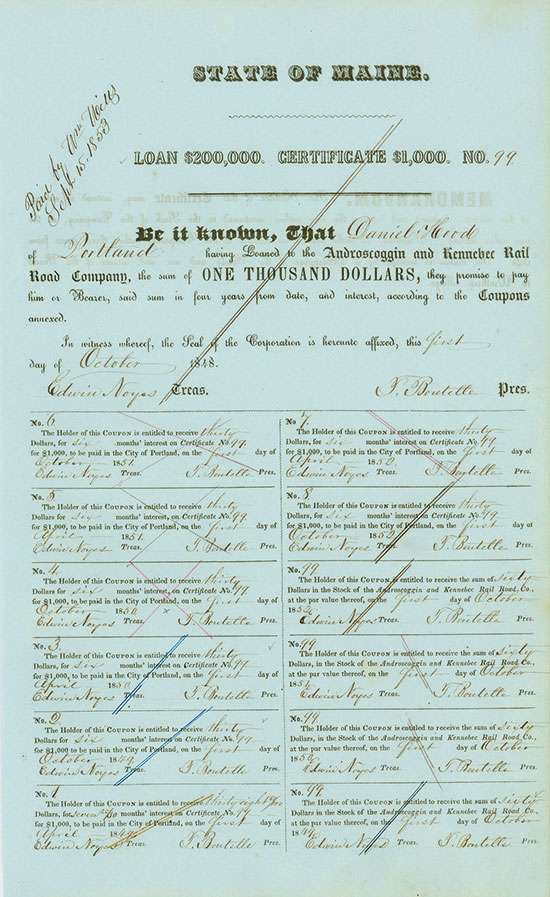 STATE OF MAINE.
Paid by Wm Willis
Sept. 15. 1853
LOAN $200,000. CERTIFICATE $1,000. NO. 99
Be it known, That Daniel Hood
of Portland having Loaned to the Androscoggin and Kennebec Rail
Road Company, the sum of ONE THOUSAND DOLLARS, they promise to pay
him or Bearer, said sum in four years from date, and interest, according to the Coupons
annexed.
In witness whereof, the Seal of the Corporation is hereunto affixed, this first
day of October 1848.
Edwin Noyes Treas. T. Boutelle Pres.
No. 6
The Holder of this COUPON is entitled to receive thirty
Dollars, for six months' interest on Certificate No. 99
for $1,000, to be paid in the City of Portland, on the first day of
October 1851.
Edwin Noyes Treas. T. Boutelle Pres.
No. 5
The Holder of this COUPON is entitled to receive thirty
Dollars, for six months' interest, on Certificate No. 99
for $1,000, to be paid in the City of Portland, on the first day of
April 1851.
Edwin Noyes Treas. T. Boutelle Pres.
No. 4
The Holder of this COUPON is entitled to receive thirty
Dollars, for six months' interest, on Certificate No. 99
for $1,000, to be paid in the City of Portland, on the first day of
October 1850
Edwin Noyes Treas. T. Boutelle Pres.
No. 3
The Holder of this COUPON is entitled to receive thirty
Dollars, for six months' interest on Certificate No. 99
for $1,000, to be paid in the City of Portland, on the first day of
April 1850
Edwin Noyes Treas. T. Boutelle Pres.
No. 2
The Holder of this COUPON is entitled to receive thirty
Dollars, for six months' interest on Certificate No. 99
for $1,000 to be paid in the City of Portland, on the first day of
October 1849
Edwin Noyes Treas. T. Boutelle Pres.
No. 1
The Holder of this COUPON is entitled to receive thirty eight
Dollars, for months' interest on Certificate No. 99
for $1,000, to be paid in the City of Portland, on the first day of
April 1849
Edwin Noyes Treas. T. Boutelle Pres.
No. 7
The Holder of this COUPON is entitled to receive thirty
Dollars, for six months' interest on Certificate No. 99
for $1,000, to be paid in the City of Portland, on the first day of
April 1852
Edwin Noyes Treas. T. Boutelle Pres.
No. 8
The Holder of this COUPON is entitled to receive thirty
Dollars, for six months' interest, on Certificate No. 99
for $1,000, to be paid in the City of Portland, on the first day of
October 1852
Edwin Noyes Treas. T. Boutelle Pres.
No. 99
The Holder of this COUPON is entitled to receive the sum of sixty
Dollars in the Stock of the Androscoggin and Kennebec Rail Road, Co.,
at the par value thereof, on the first day of October
1852
Edwin Noyes Treas. T. Boutelle Pres.
No. 99
The Holder of this COUPON is entitled to receive the sum of sixty
Dollars, in the Stock of the Androscoggin and Kennebec Rail Road Co.,
at the par value thereof, on the first day of October
1851
Edwin Noyes Treas. T. Boutelle Pres.
No. 99
The Holder of this COUPON is entitled to receive the sum of sixty
Dollars, in the Stock of the Androscoggin and Kennebec Rail Road Co.,
at the par value thereof, on the first day of October
1850
Edwin Noyes Treas. T. Boutelle Pres.
No. 99
The Holder of this COUPON is entitled to receive the sum of sixty
Dollars, in the Stock of the Androscoggin and Kennebec Rail Road Co.,
at the par value thereof, on the first day of October
1849
Edwin Noyes Treas. T. Boutelle Pres.